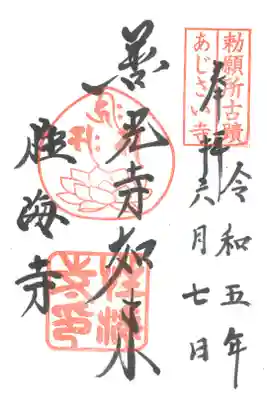 勅願所古蹟
あじさい寺
奉拝
令和五年
六月七日
善光寺如来
胜海寺